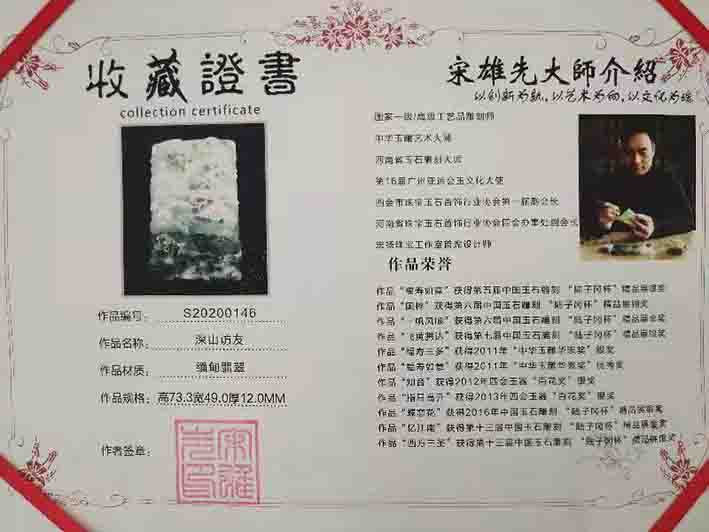 收藏證書
collection certificate
作品编号: S20200146
作品名称: 深山访友
作品材质: 缅甸翡翠
作品规格: 高73.3宽49.0厚12.0MM
作者签章:
宋雄先大師介紹
以创新为轨,以艺术为向,以文化为魂
国家一级/高级工艺品雕刻师
中华玉雕艺术大师
河南省玉石雕刻大师
第16届广州亚运会玉文化大使
四会市珠宝玉石首饰行业协会第一届副会长
河南省珠宝玉石首饰行业协会四会办事处副会长
珠宝工作室首席设计师
作品荣誉
作品“福寿如意”获得第五届中国玉石雕刻 “陆子冈杯”精品银奖
作品“国粹”获得第六届中国玉石雕刻 “陆子冈杯”精品银奖
作品“一帆风顺”获得第六届中国玉石雕刻 “陆子冈杯”精品金奖
作品“飞黄腾达”获得第七届中国玉石雕刻 “陆子冈杯”精品银奖
作品“福寿三多”获得2011年“中华玉雕华表奖”银奖
作品“福寿如意”获得2011年“中华玉雕华表奖”优秀奖
作品“知音”获得2012年四会玉器“百花奖”银奖
作品“指日高升”获得2013年四会玉器“百花奖”银奖
作品“蝶恋花”获得2016年中国玉石雕刻“陆子冈杯”精品铜奖
作品“忆江南”获得第十三届中国玉石雕刻 “陆子冈杯”精品银奖
作品“西方三圣”获得第十三届中国玉石雕刻 “陆子冈杯”精品银奖